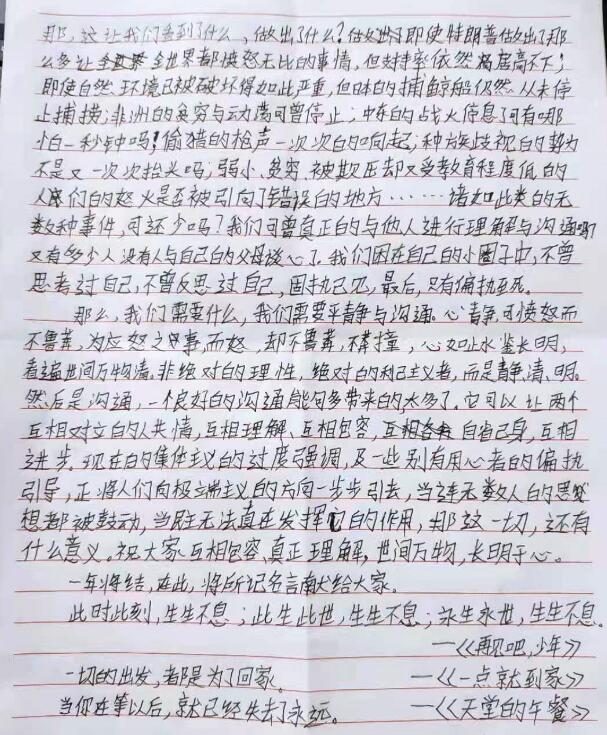 那，这让我们看到了什么，做出了什么？做出了即使特朗普做出了那
么多让全世界都愤怒无比的事情，但支持率依然居高不下；
即使自然环境已被破坏得如此严重，但日本的捕鲸船仍然从未停
止捕捞；非洲的贫穷与动荡可曾停止；中东的战火停息了可有哪
怕一秒钟吗！偷猎的枪声一次次的响起；种族歧视的行为
不是又一次次抬头吗；弱小、贫穷、被欺压却又受教育程度低的
人们的怒火是否被引向了错误的地方……诸如此类的无
数种事件，可还少吗？我们可曾真正的与他人进行理解与沟通吗？
又有多少人没有人与自己的父母谈心了，我们困在自己的小圈子中，不曾
思考过自己，不曾反思过自己，固执己见，最后，只有偏执至死。
那么，我们需要什么，我们需要平静与沟通。心静，可愤怒而
不鲁莽，为应怒之事而怒，却不鲁莽，不莽撞，心如止水鉴长明，
看遍世间万物清。非绝对的理性，绝对的利己主义者，而是静、清、明。
然后是沟通，一个良好的沟通能够带来的太多了。它可以让两个
互相对立的人共情，互相理解、互相包容，自省己身，互相
进步。现在的集体主义的过度强调，及一些别有用心者的偏执
引导，正将人们向极端主义的方向一步步引去，当连无数人的思
想都被鼓动，当民主无法真正发挥它的作用，那这一切，还有
什么意义。祝大家互相包容、真正理解，世间万物，长明于心。
一年将结，在此，将所记名言献给大家。
此时此刻，生生不息；此生此世，生生不息；永生永世，生生不息。
——《再见吧，少年》
一切的出发，都是为了回家。 ——《一点就到家》
当你在等以后，就已经失去了永远。 ——《天堂的午餐》